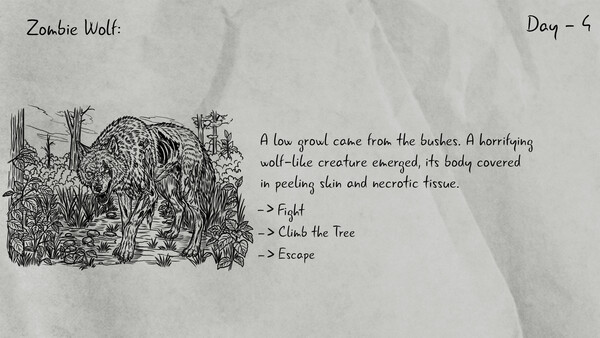 Zombie Wolf:
Day - 4
A low growl came from the bushes. A horrifying
wolf-like creature emerged, its body covered
in peeling skin and necrotic tissue.
-> Fight
-> Climb the Tree
-> Escape